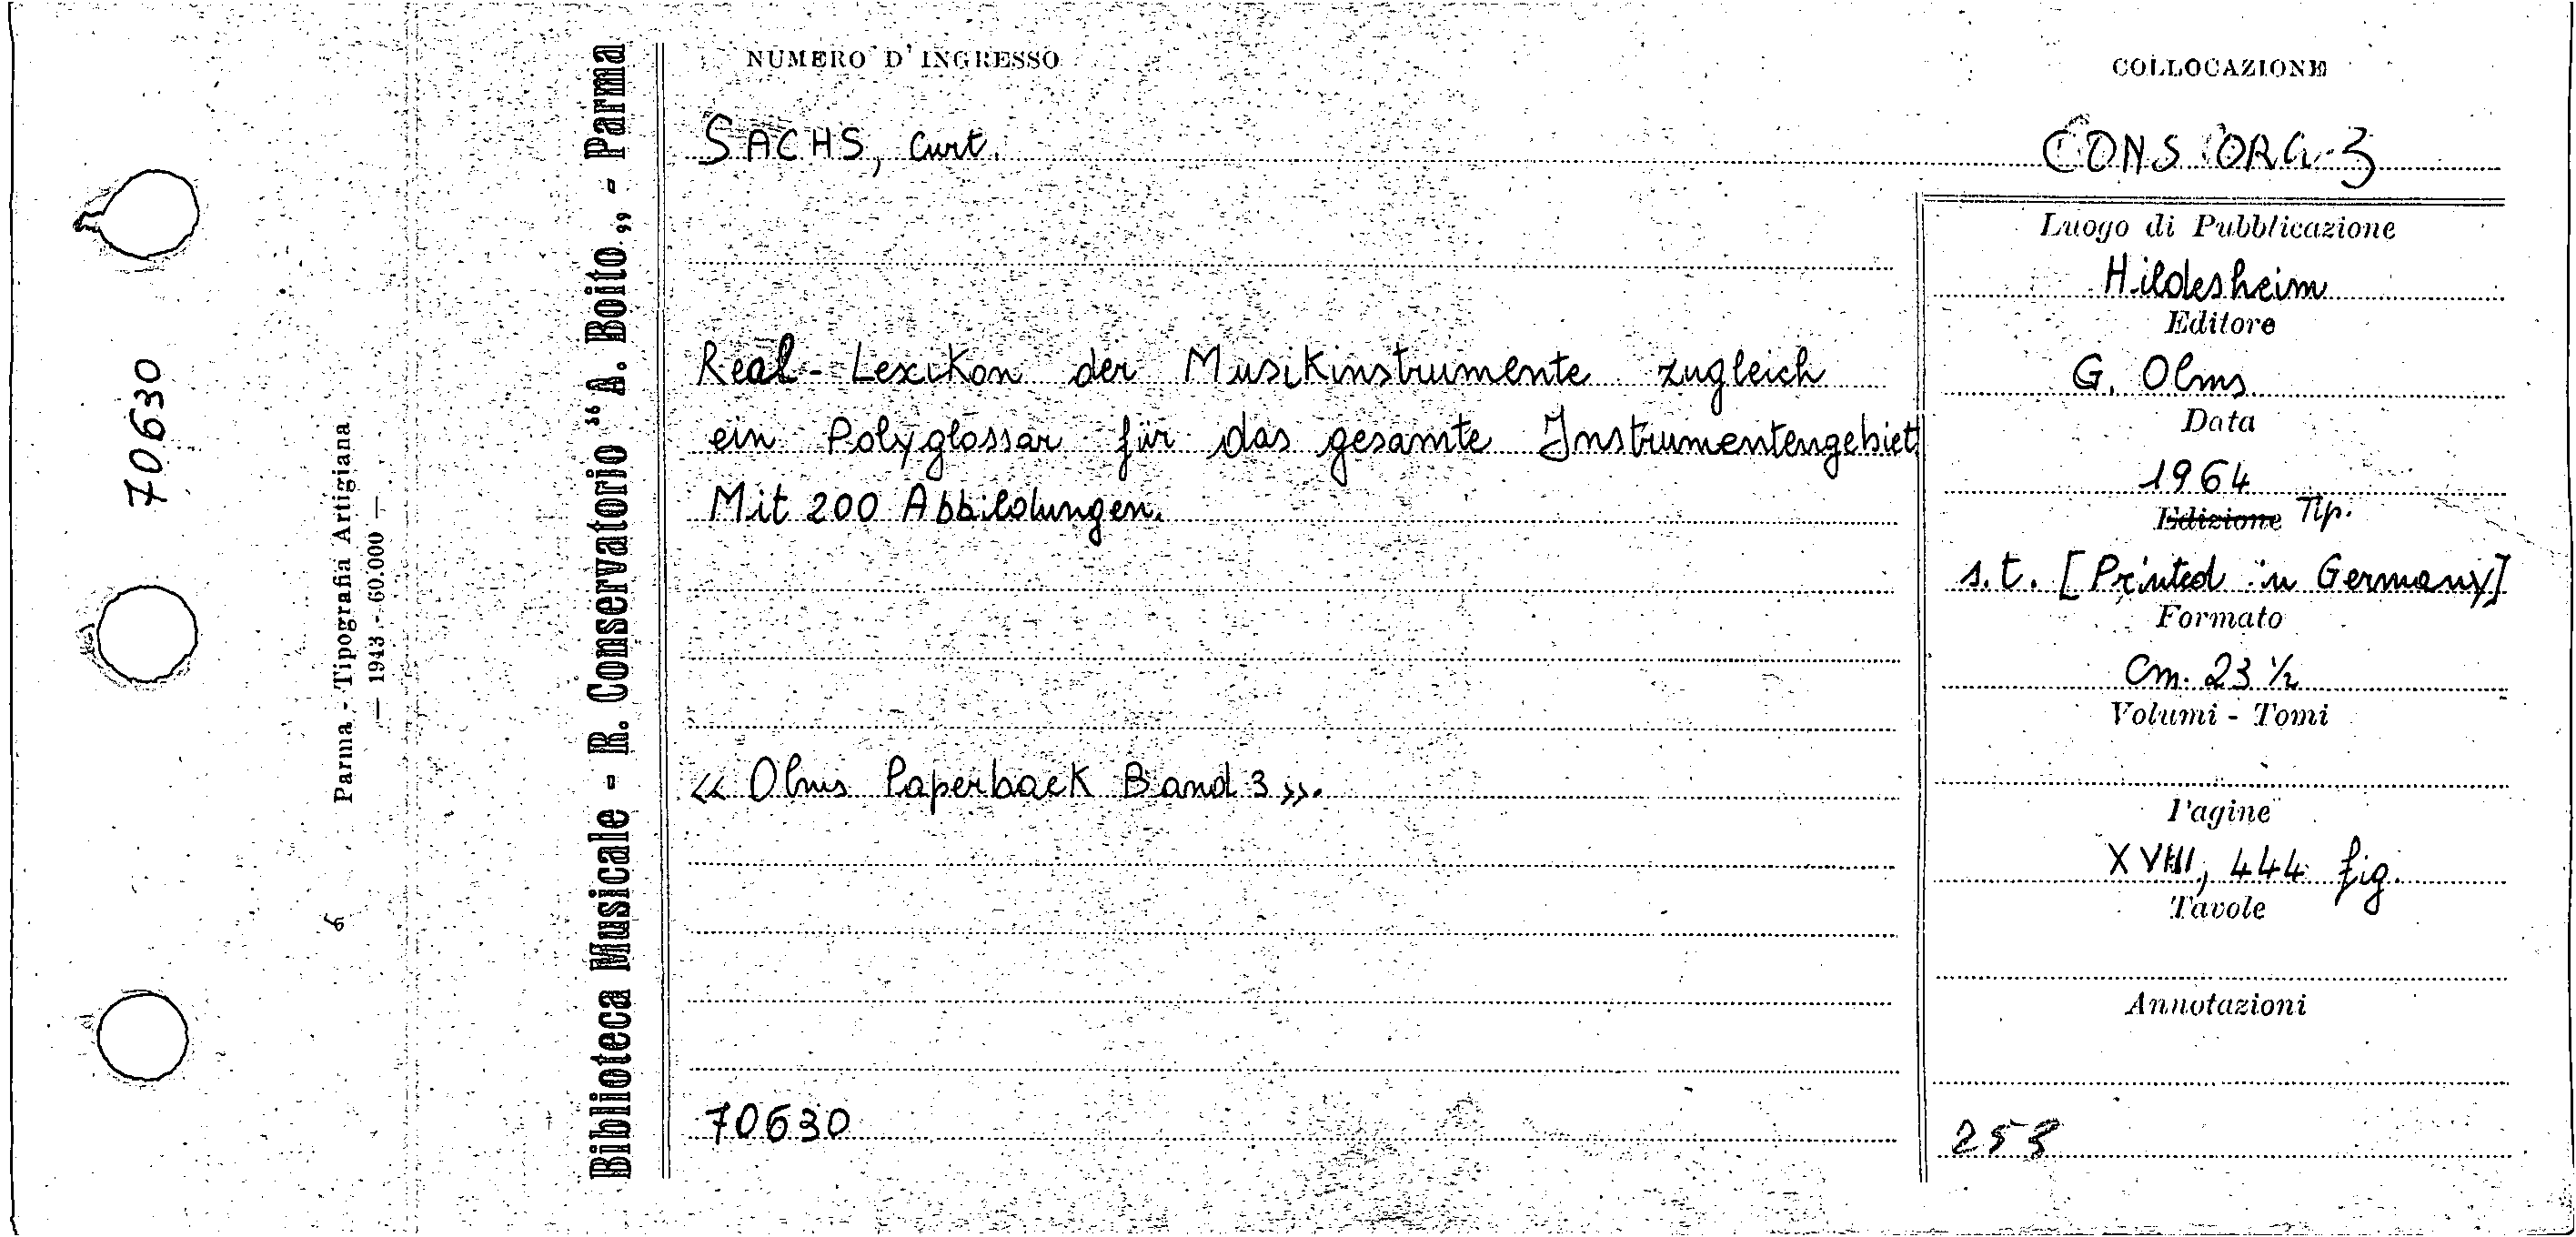 NUMERO D' INGRESSO
COLLOCAZIONE
SACHS, Curt.
CONS ORG-3
Real-Lexikon der Musikinstrumente zugleich
ein Polyglossar für das gesamte Instrumentengebiet
Mit 200 Abbildungen.
« Olms Paperback Band 3 ».
70630
Luogo di Pubblicazione
Hildesheim
Editore
G. Olms
Data
1964
Edizione Tip.
s.t. [Printed in Germany]
Formato
Cm. 23 ½
Volumi - Tomi
Pagine
XVIII, 444 fig.
Tavole
Annotazioni
258
Biblioteca Musicale - R. Conservatorio “ A. Boito „ - Parma
Parma - Tipografia Artigiana
— 1943 - 60.000 —
70630